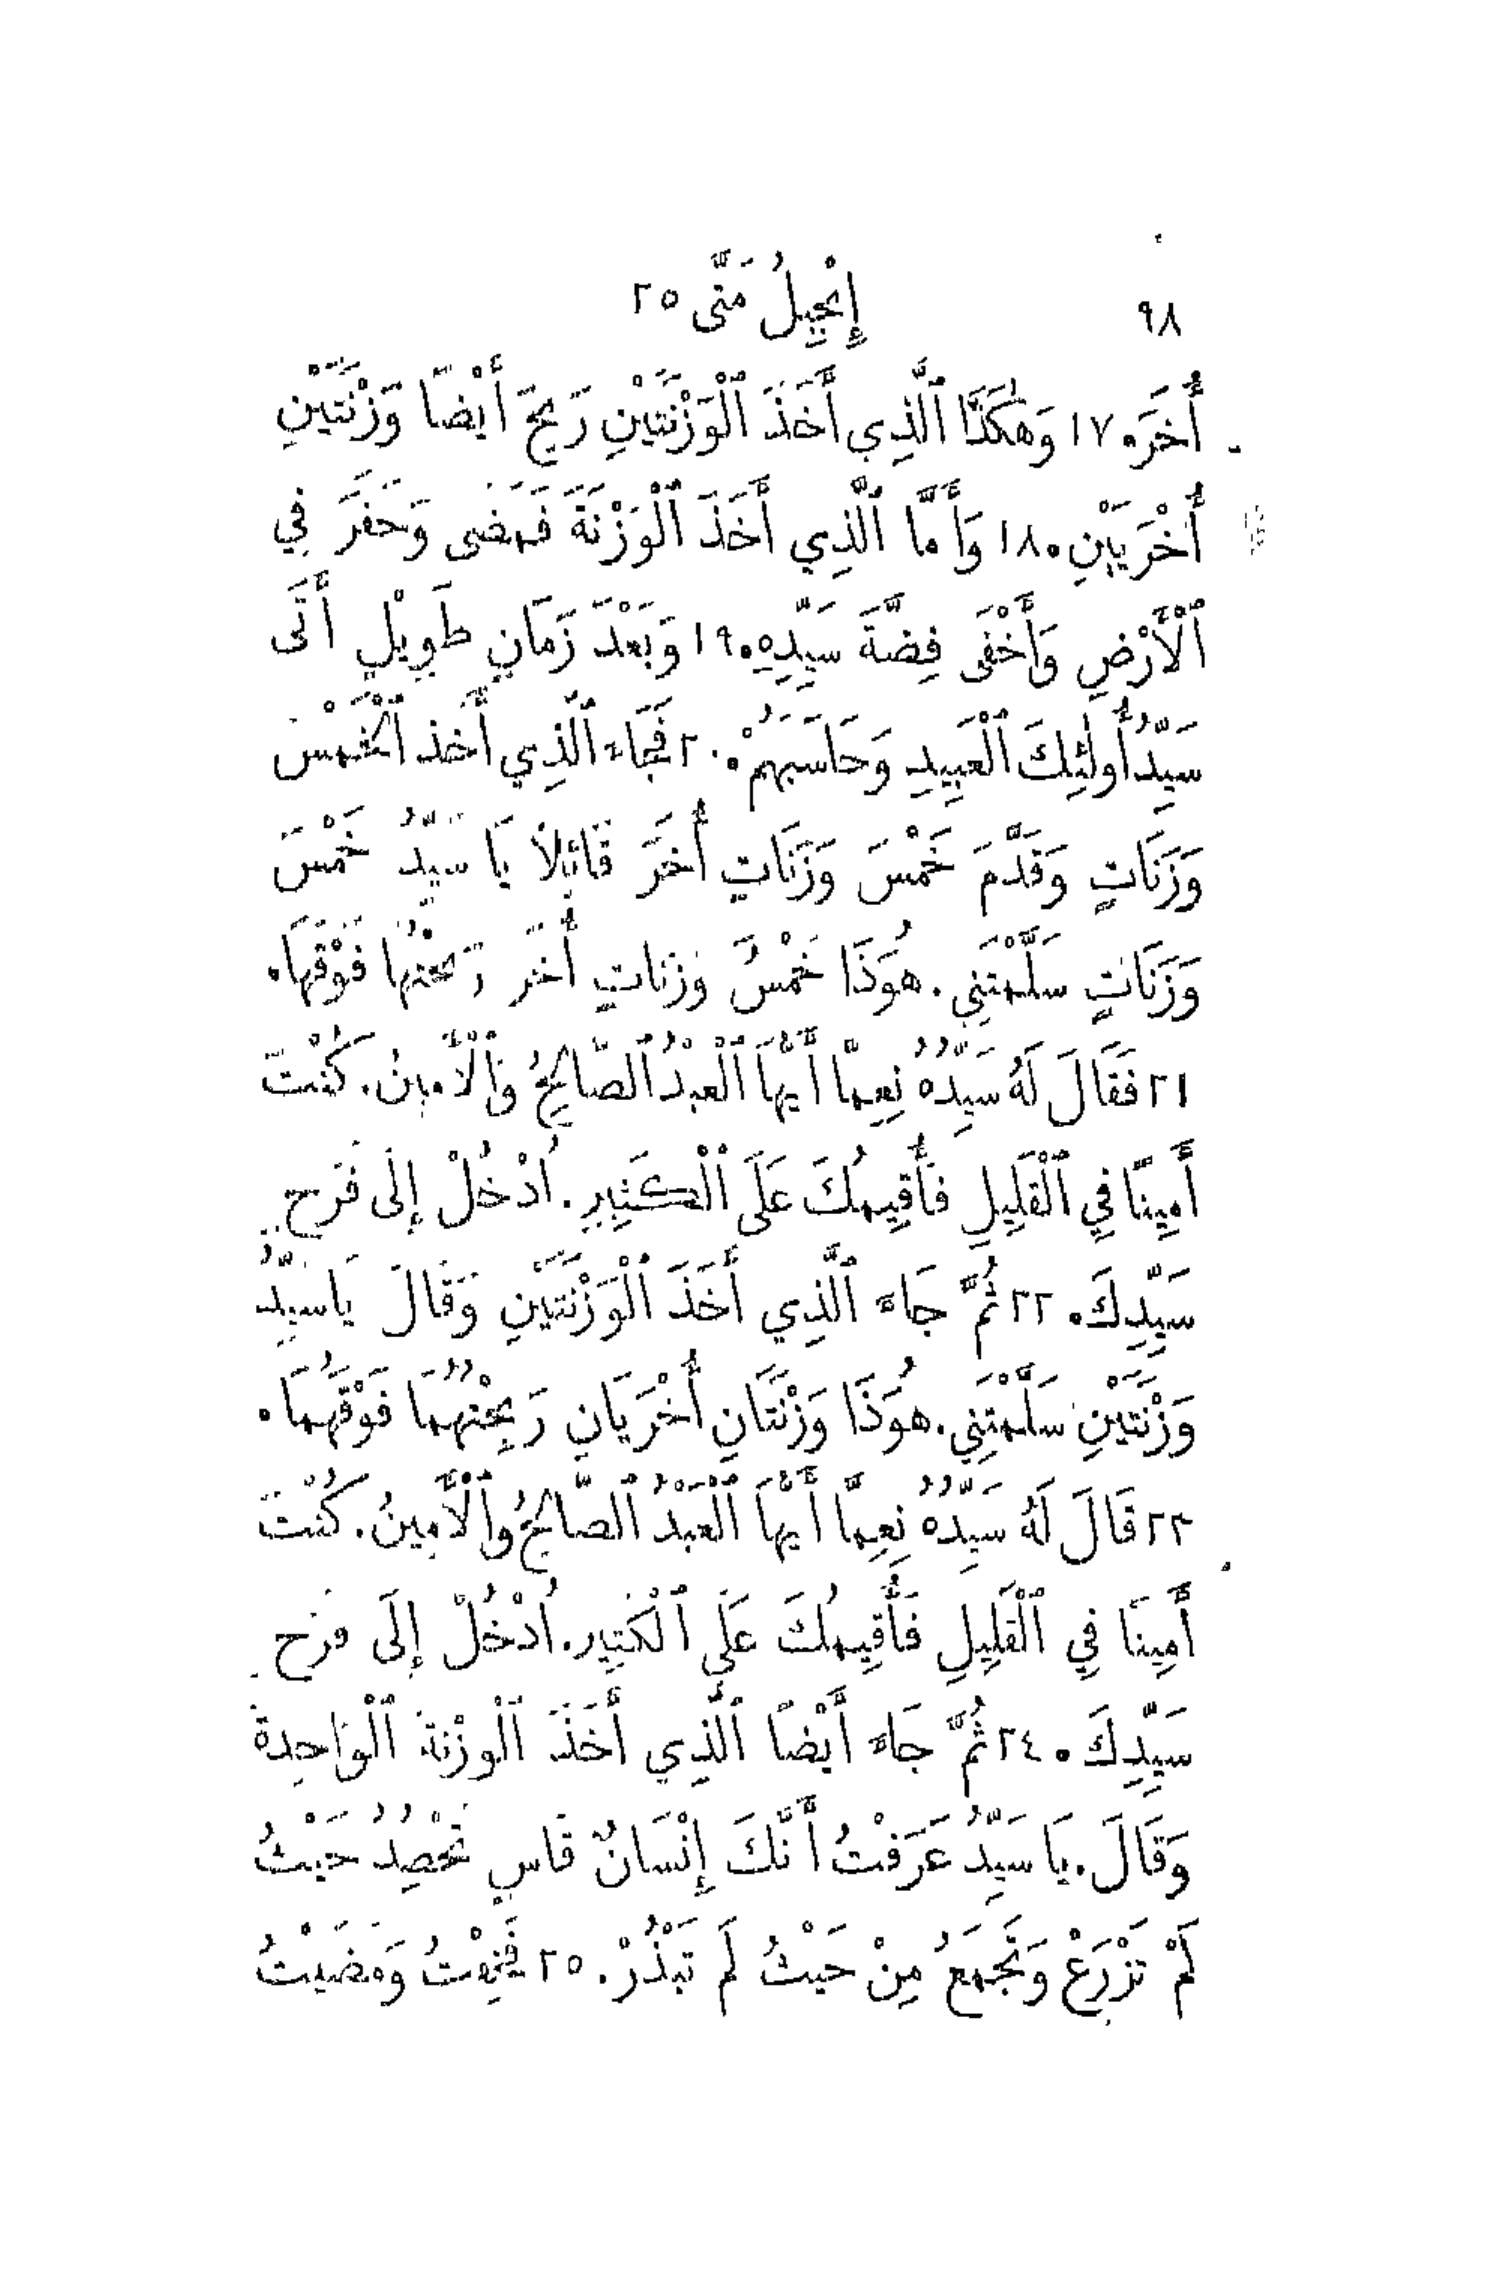 ٩٨ إِنْجِيلُ مَتَّى ٢٥
أُخَرَ. ١٧ وَهٰكَذَا ٱلَّذِي أَخَذَ ٱلْوَزْنَتَيْنِ رَبِحَ أَيْضًا وَزْنَتَيْنِ
أُخْرَيَيْنِ. ١٨ وَأَمَّا ٱلَّذِي أَخَذَ ٱلْوَزْنَةَ فَمَضَى وَحَفَرَ فِي
ٱلْأَرْضِ وَأَخْفَى فِضَّةَ سَيِّدِهِ. ١٩ وَبَعْدَ زَمَانٍ طَوِيلٍ أَتَى
سَيِّدُ أُولٰئِكَ ٱلْعَبِيدِ وَحَاسَبَهُمْ. ٢٠ فَجَاءَ ٱلَّذِي أَخَذَ ٱلْخَمْسَ
وَزَنَاتٍ وَقَدَّمَ خَمْسَ وَزَنَاتٍ أُخَرَ قَائِلًا يَا سَيِّدُ خَمْسَ
وَزَنَاتٍ سَلَّمْتَنِي. هُوَذَا خَمْسُ وَزَنَاتٍ أُخَرُ رَبِحْتُهَا فَوْقَهَا.
٢١ فَقَالَ لَهُ سَيِّدُهُ نِعِمَّا أَيُّهَا ٱلْعَبْدُ ٱلصَّالِحُ وَٱلْأَمِينُ. كُنْتَ
أَمِينًا فِي ٱلْقَلِيلِ فَأُقِيمُكَ عَلَى ٱلْكَثِيرِ. اُدْخُلْ إِلَى فَرَحِ
سَيِّدِكَ. ٢٢ ثُمَّ جَاءَ ٱلَّذِي أَخَذَ ٱلْوَزْنَتَيْنِ وَقَالَ يَا سَيِّدُ
وَزْنَتَيْنِ سَلَّمْتَنِي. هُوَذَا وَزْنَتَانِ أُخْرَيَانِ رَبِحْتُهُمَا فَوْقَهُمَا.
٢٣ قَالَ لَهُ سَيِّدُهُ نِعِمَّا أَيُّهَا ٱلْعَبْدُ ٱلصَّالِحُ وَٱلْأَمِينُ. كُنْتَ
أَمِينًا فِي ٱلْقَلِيلِ فَأُقِيمُكَ عَلَى ٱلْكَثِيرِ. اُدْخُلْ إِلَى فَرَحِ
سَيِّدِكَ. ٢٤ ثُمَّ جَاءَ أَيْضًا ٱلَّذِي أَخَذَ ٱلْوَزْنَةَ ٱلْوَاحِدَةَ
وَقَالَ. يَا سَيِّدُ عَرَفْتُ أَنَّكَ إِنْسَانٌ قَاسٍ تَحْصِدُ حَيْثُ
لَمْ تَزْرَعْ وَتَجْمَعُ مِنْ حَيْثُ لَمْ تَبْذُرْ. ٢٥ فَخِفْتُ وَمَضَيْتُ